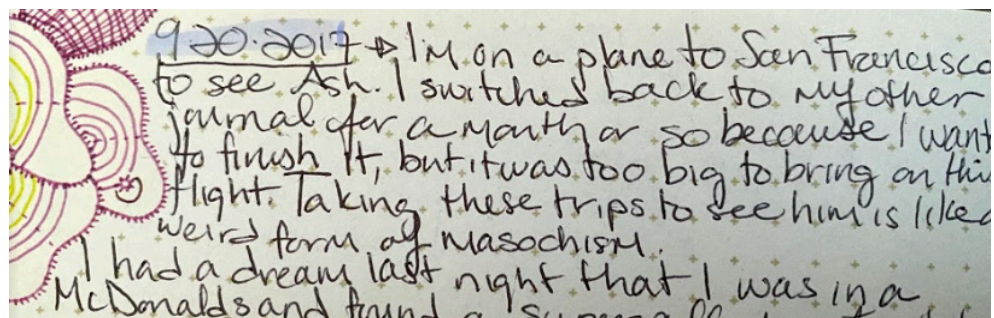 9.20.2017 → I'm on a plane to San Francisco
to see Ash. I switched back to my other
journal for a month or so because I want
to finish it, but it was too big to bring on this
flight. Taking these trips to see him is like a
weird form of masochism.
I had a dream last night that I was in a
McDonalds and found a